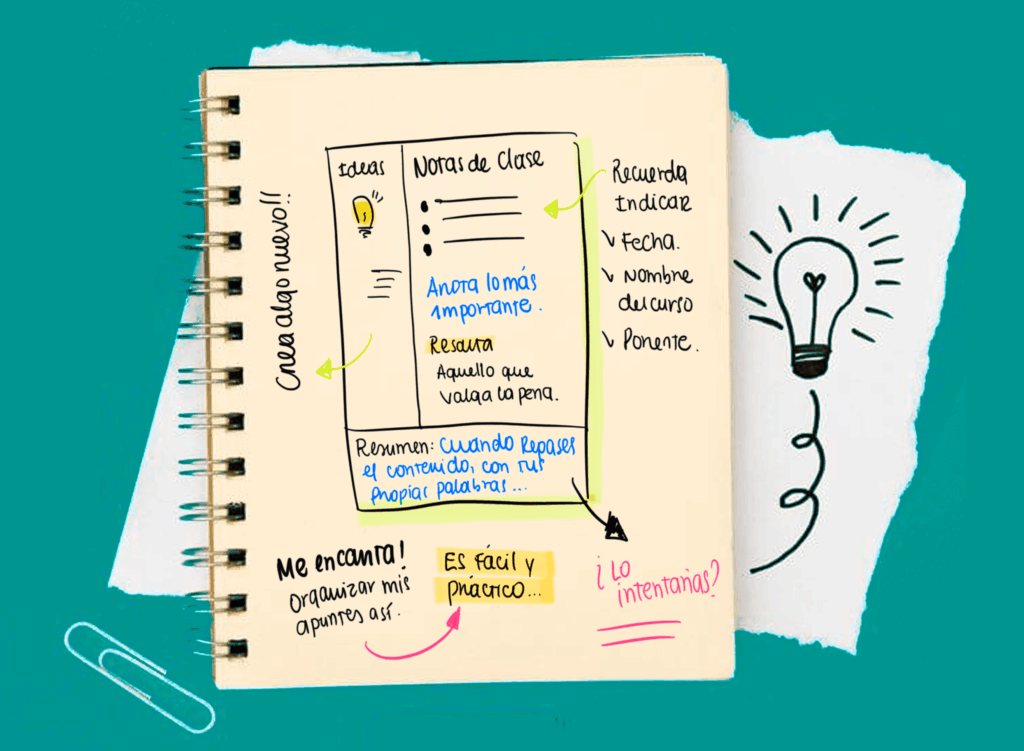 Crea algo nuevo!!
Ideas
Notas de Clase
Anota lo más
importante.
Resalta
Aquello que
valga la pena.
Resumen: Cuando Repases
el contenido, con tus
propias palabras...
Recuerda
Indicar
Fecha.
Nombre
del curso
Ponente.
Me encanta!
Organizar mis
apuntes así.
Es Fácil y
práctico...
¿Lo
intentarías?